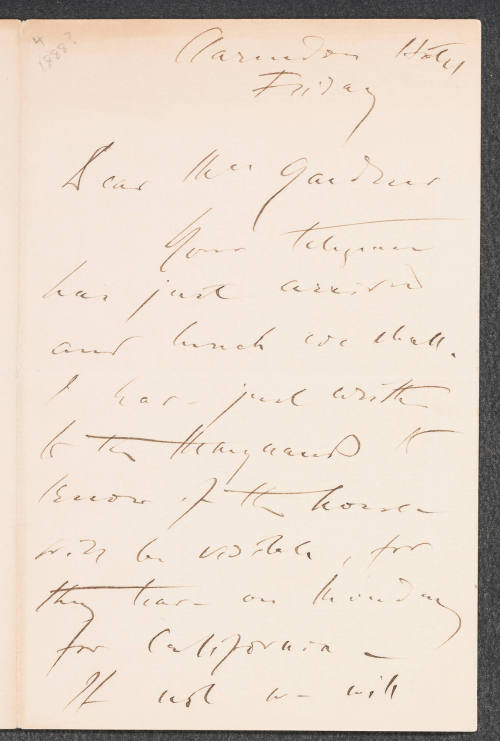 4
1888?
Clarendon Hotel
Friday
Dear Mrs Gardner
Your telegram
has just arrived
and lunch we shall.
I have just written
to the Marquands to
know if the house
will be visible, for
they leave on Monday
for California –
If not we will